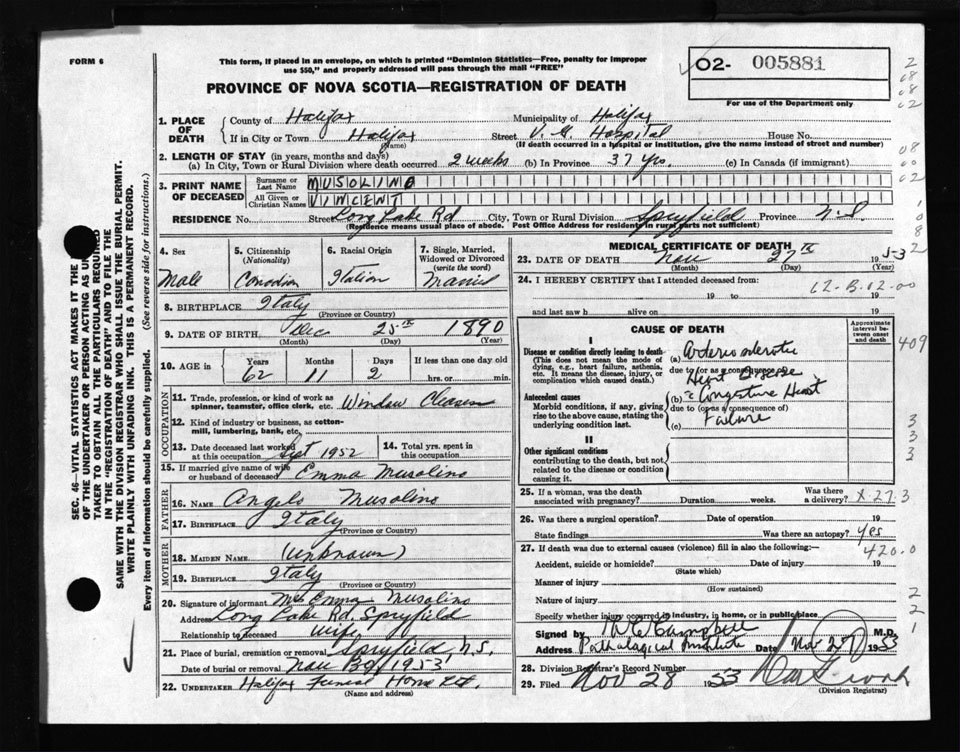 FORM 6
This form, if placed in an envelope, on which is printed "Dominion Statistics—Free, penalty for improper
use $50," and properly addressed will pass through the mail "FREE"
PROVINCE OF NOVA SCOTIA—REGISTRATION OF DEATH
02- 005881
For use of the Department only
SEC. 46—VITAL STATISTICS ACT MAKES IT THE
OF THE UNDERTAKER OR PERSON ACTING AS UN
TAKER TO OBTAIN ALL THE PARTICULARS REQUIRED
IN THE "REGISTRATION OF DEATH" AND TO FILE THE
SAME WITH THE DIVISION REGISTRAR WHO SHALL ISSUE THE BURIAL PERMIT.
WRITE PLAINLY WITH UNFADING INK. THIS IS A PERMANENT RECORD.
Every item of information should be carefully supplied. (See reverse side for instructions.)
1. PLACE OF DEATH
County of Halifax Municipality of Halifax
If in City or Town Halifax Street V. G. Hospital House No.
(Name) (If death occurred in a hospital or institution, give the name instead of street and number)
2. LENGTH OF STAY (in years, months and days)
(a) In City, Town or Rural Division where death occurred 2 weeks (b) In Province 37 yrs (c) In Canada (if immigrant)
3. PRINT NAME OF DECEASED
Surname or Last Name MUSOLINO
All Given or Christian Names VINCENT
RESIDENCE No. Street Long Lake Rd City, Town or Rural Division Spryfield Province N.S.
(Residence means usual place of abode. Post Office Address for residents in rural parts not sufficient)
4. Sex Male
5. Citizenship (Nationality) Canadian
6. Racial Origin Italian
7. Single, Married, Widowed or Divorced (write the word) Married
8. BIRTHPLACE Italy
(Province or Country)
9. DATE OF BIRTH Dec 25th 1890
(Month) (Day) (Year)
10. AGE in Years 62 Months 11 Days 2 If less than one day old hrs. or min.
OCCUPATION
11. Trade, profession, or kind of work as spinner, teamster, office clerk, etc. Window Cleaner
12. Kind of industry or business, as cotton-mill, lumbering, bank, etc.
13. Date deceased last worked at this occupation Sept 1952
14. Total yrs. spent in this occupation
15. If married give name of wife or husband of deceased Emma Musolino
FATHER
16. NAME Angelo Musolino
17. BIRTHPLACE Italy
(Province or Country)
MOTHER
18. MAIDEN NAME (unknown)
19. BIRTHPLACE Italy
(Province or Country)
20. Signature of informant Mrs Emma Musolino
Address Long Lake Rd. Spryfield
Relationship to deceased Wife
21. Place of burial, cremation or removal Spryfield, N.S.
Date of burial or removal Nov 1953
22. UNDERTAKER Halifax Funeral Home Ltd.
(Name and address)
MEDICAL CERTIFICATE OF DEATH
23. DATE OF DEATH Nov 27th 1953
(Month) (Day) (Year)
24. I HEREBY CERTIFY that I attended deceased from:
19 to 19
and last saw h alive on 19
CAUSE OF DEATH
Approximate interval between onset and death
I
Disease or condition directly leading to death
(This does not mean the mode of dying, e.g., heart failure, asthenia, etc. It means the disease, injury, or complication which caused death.)
(a) Arteriosclerotic
due to (or as a consequence of)
Heart Disease
Antecedent causes
Morbid conditions, if any, giving rise to the above cause, stating the underlying condition last.
(b) c Congestive Heart
due to (or as a consequence of)
(c) Failure
II
Other significant conditions
contributing to the death, but not related to the disease or condition causing it.
25. If a woman, was the death associated with pregnancy? Duration weeks. Was there a delivery?
26. Was there a surgical operation? Date of operation 19
State findings Was there an autopsy? Yes
27. If death was due to external causes (violence) fill in also the following:—
Accident, suicide or homicide? Date of injury 19
(State which)
Manner of injury
(How sustained)
Nature of injury
Specify whether injury occurred in industry, in home, or in public place
Signed by Campbell M.D.
Address Pathological Institute Date Nov 27 1953
28. Division Registrar's Record Number
29. Filed Nov 28 1953
(Division Registrar)
409
420.0